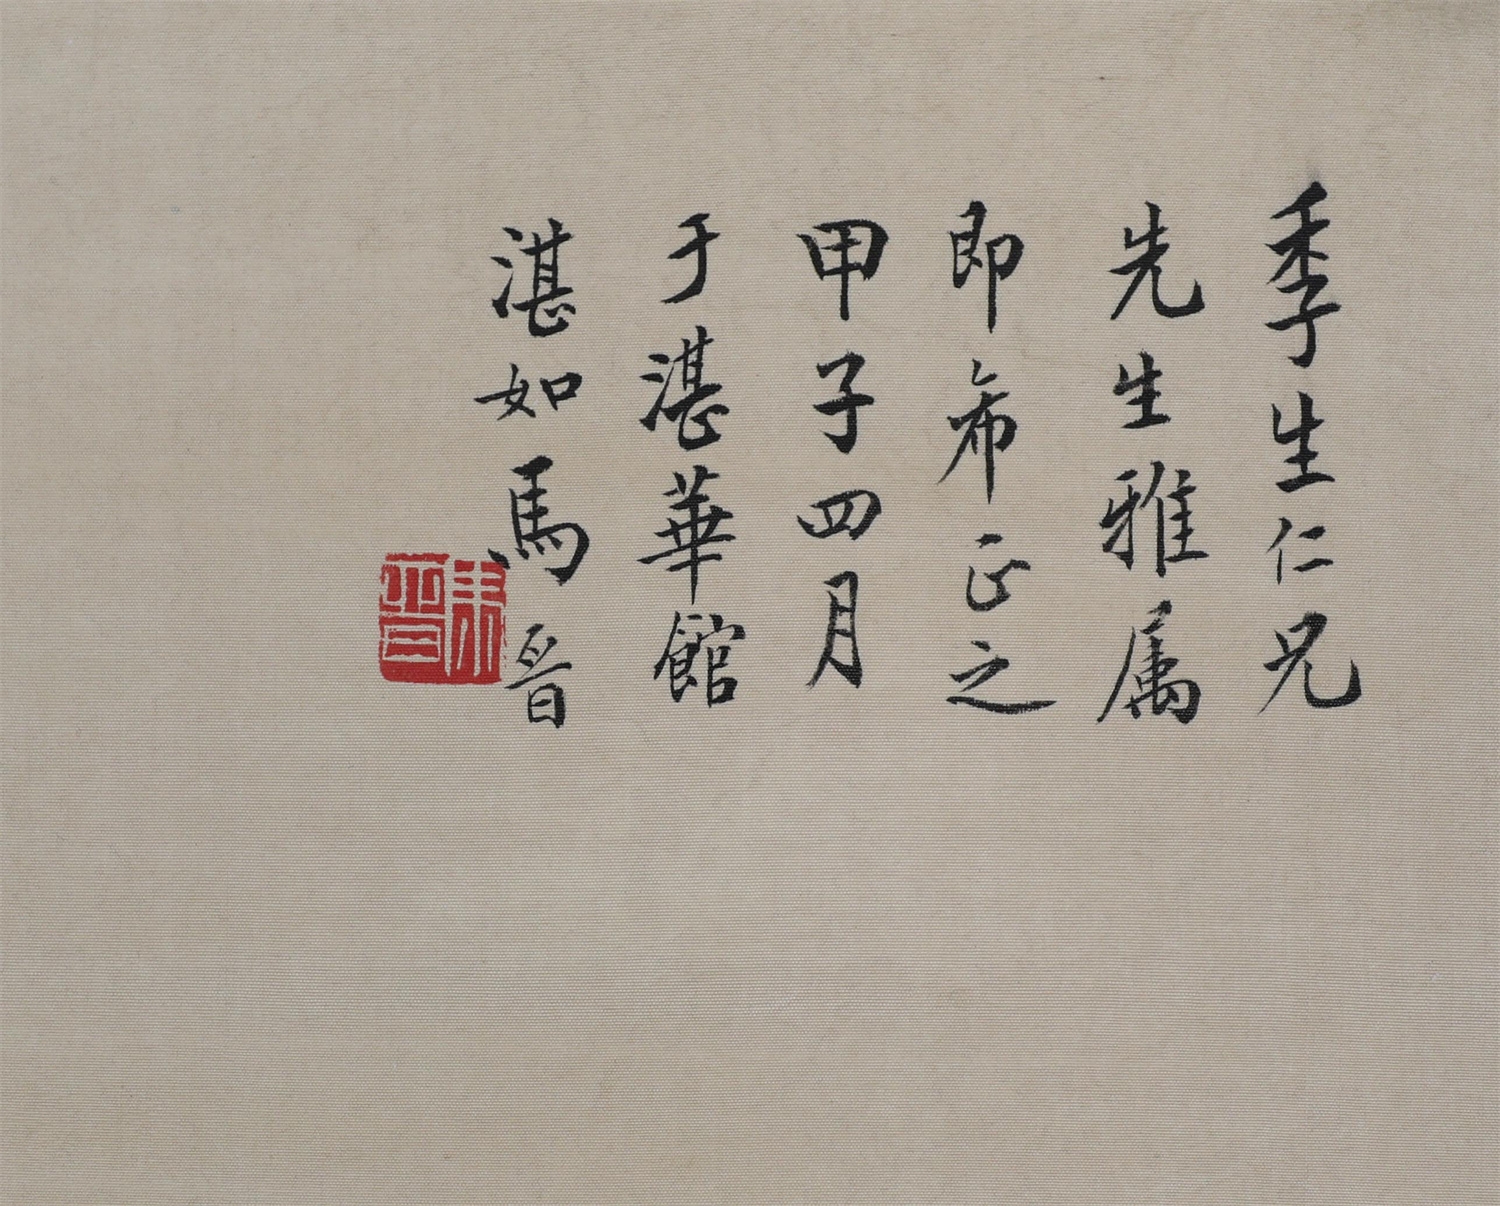 季生仁兄
先生雅属
即希正之
甲子四月
于湛華館
湛如馬晉
馬晉